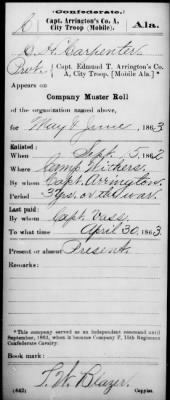 (Confederate.)
C Capt. Arrington's Co. A, City Troop (Mobile). Ala.
Carpenter
Pvt., Capt. Edmund T. Arrington's Co. A, City Troop. [Mobile Ala.]*
Appears on
Company Muster Roll
of the organization named above,
for May & June, 1863
Enlisted:
When Sept. 5, 1862
Where Camp Withers.
By whom Capt. Arrington.
Period 3 yrs. or the war.
Last paid:
By whom Capt. Vass.
To what time April 30, 1863
Present or absent Present.
Remarks:
*This company served as an independent command until
September, 1863, when it became Company F, 15th Regiment
Confederate Cavalry.
Book mark:
(642) Copyist.